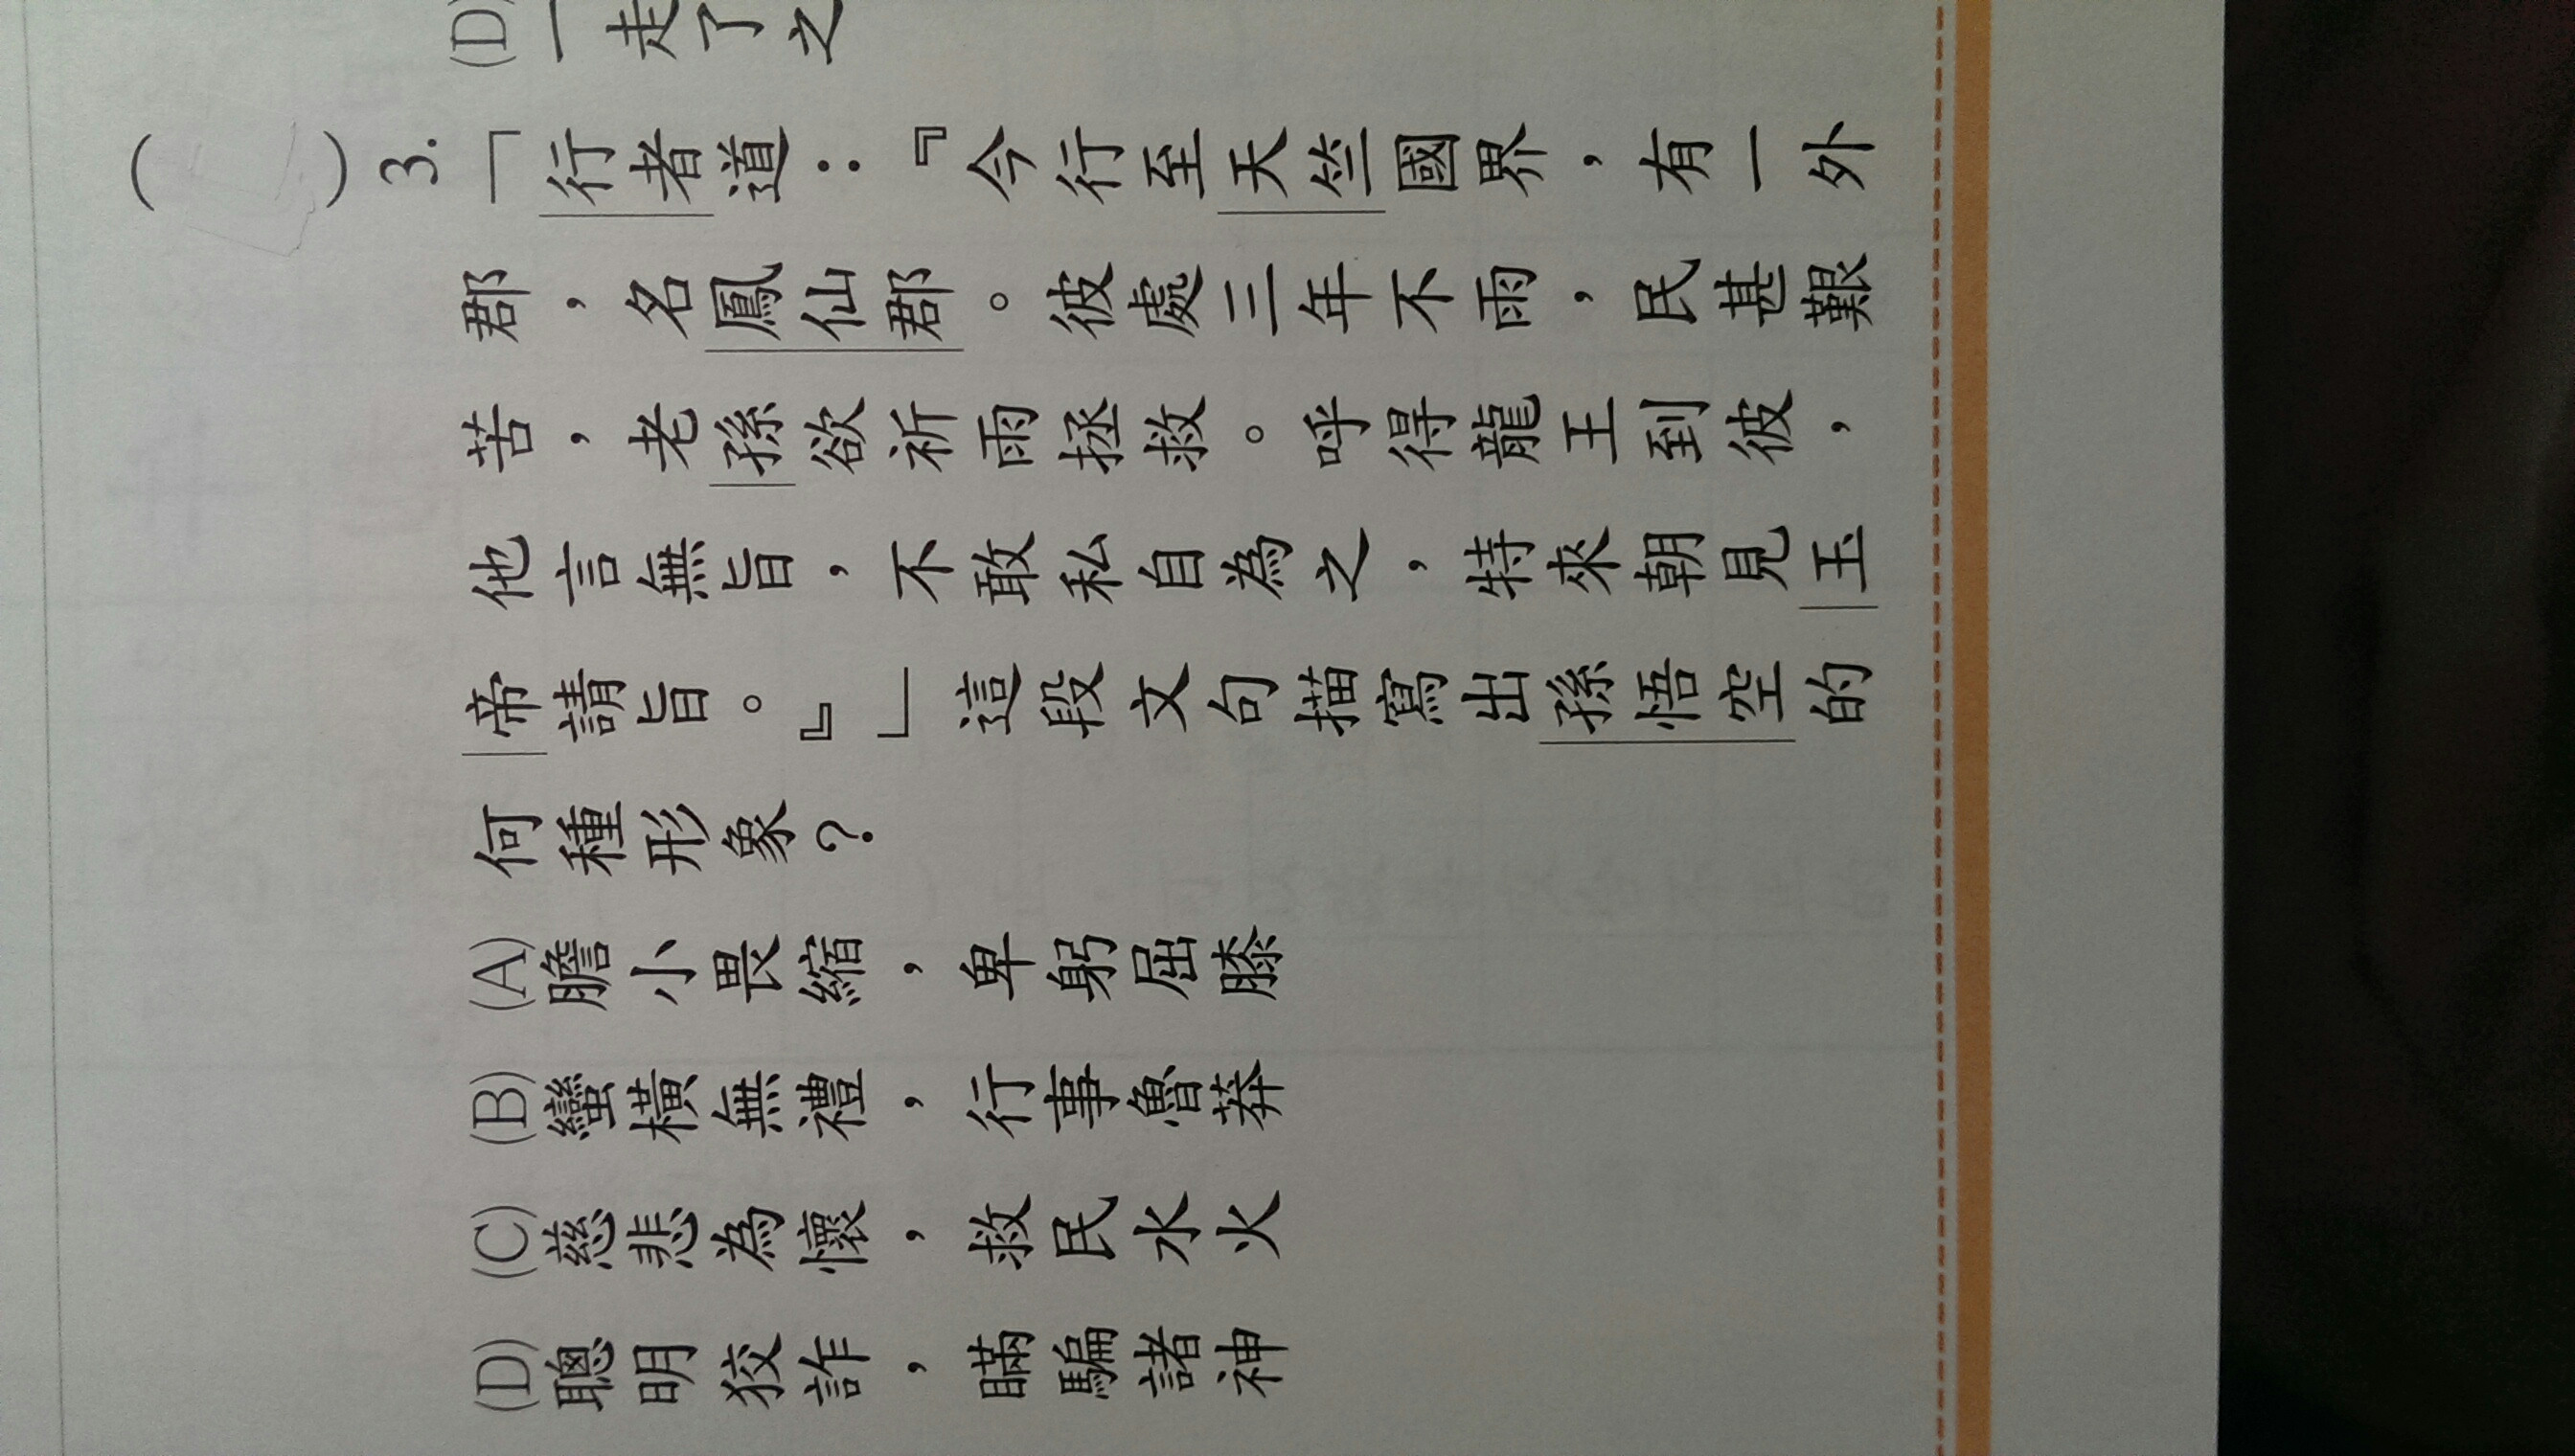 (D)一走了之
( )3.「行者道:『今行至天竺國界,有一外
郡,名鳳仙郡。彼處三年不雨,民甚艱
苦,老孫欲祈雨拯救。呼得龍王到彼,
他言無旨,不敢私自為之,特來朝見玉
帝請旨。』」這段文句描寫出孫悟空的
何種形象?
(A)膽小畏縮,卑躬屈膝
(B)蠻橫無禮,行事魯莽
(C)慈悲為懷,救民水火
(D)聰明狡詐,瞞騙諸神